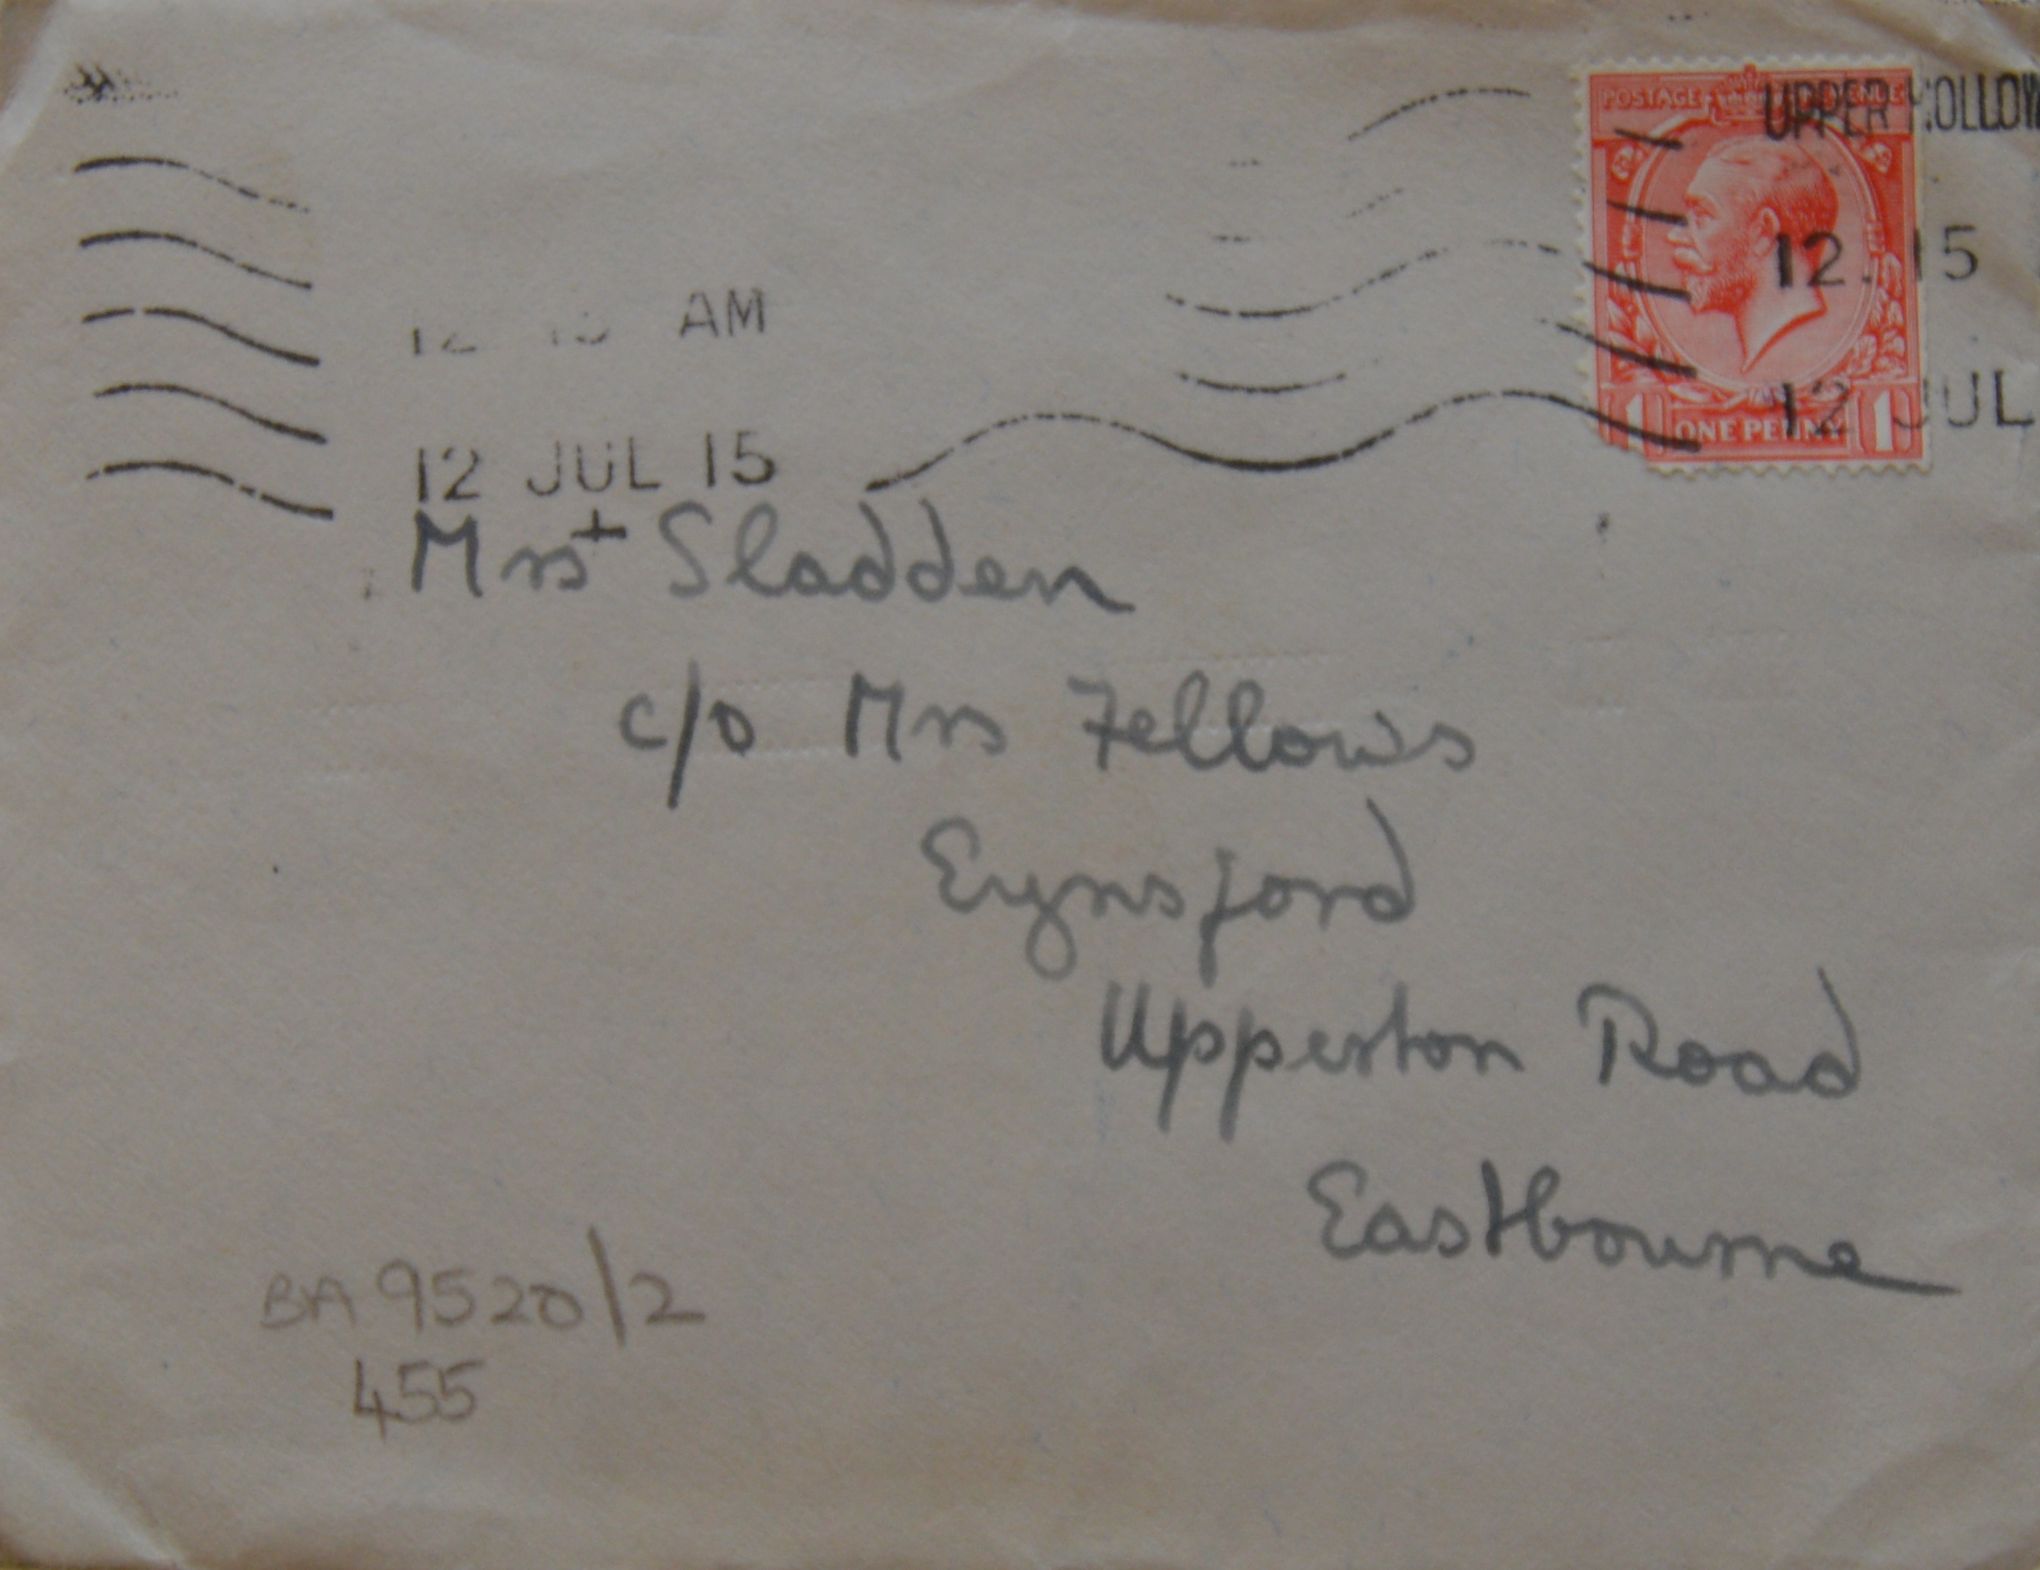 POSTAGE
UPPER HOLLOW
12.15
12 15 AM
12 JUL
12 JUL 15
ONE PENNY
1 1
+
Mrs Sladden
c/o Mrs Fellows
Eynsford
Upperton Road
Eastbourne
BA 9520/2
455